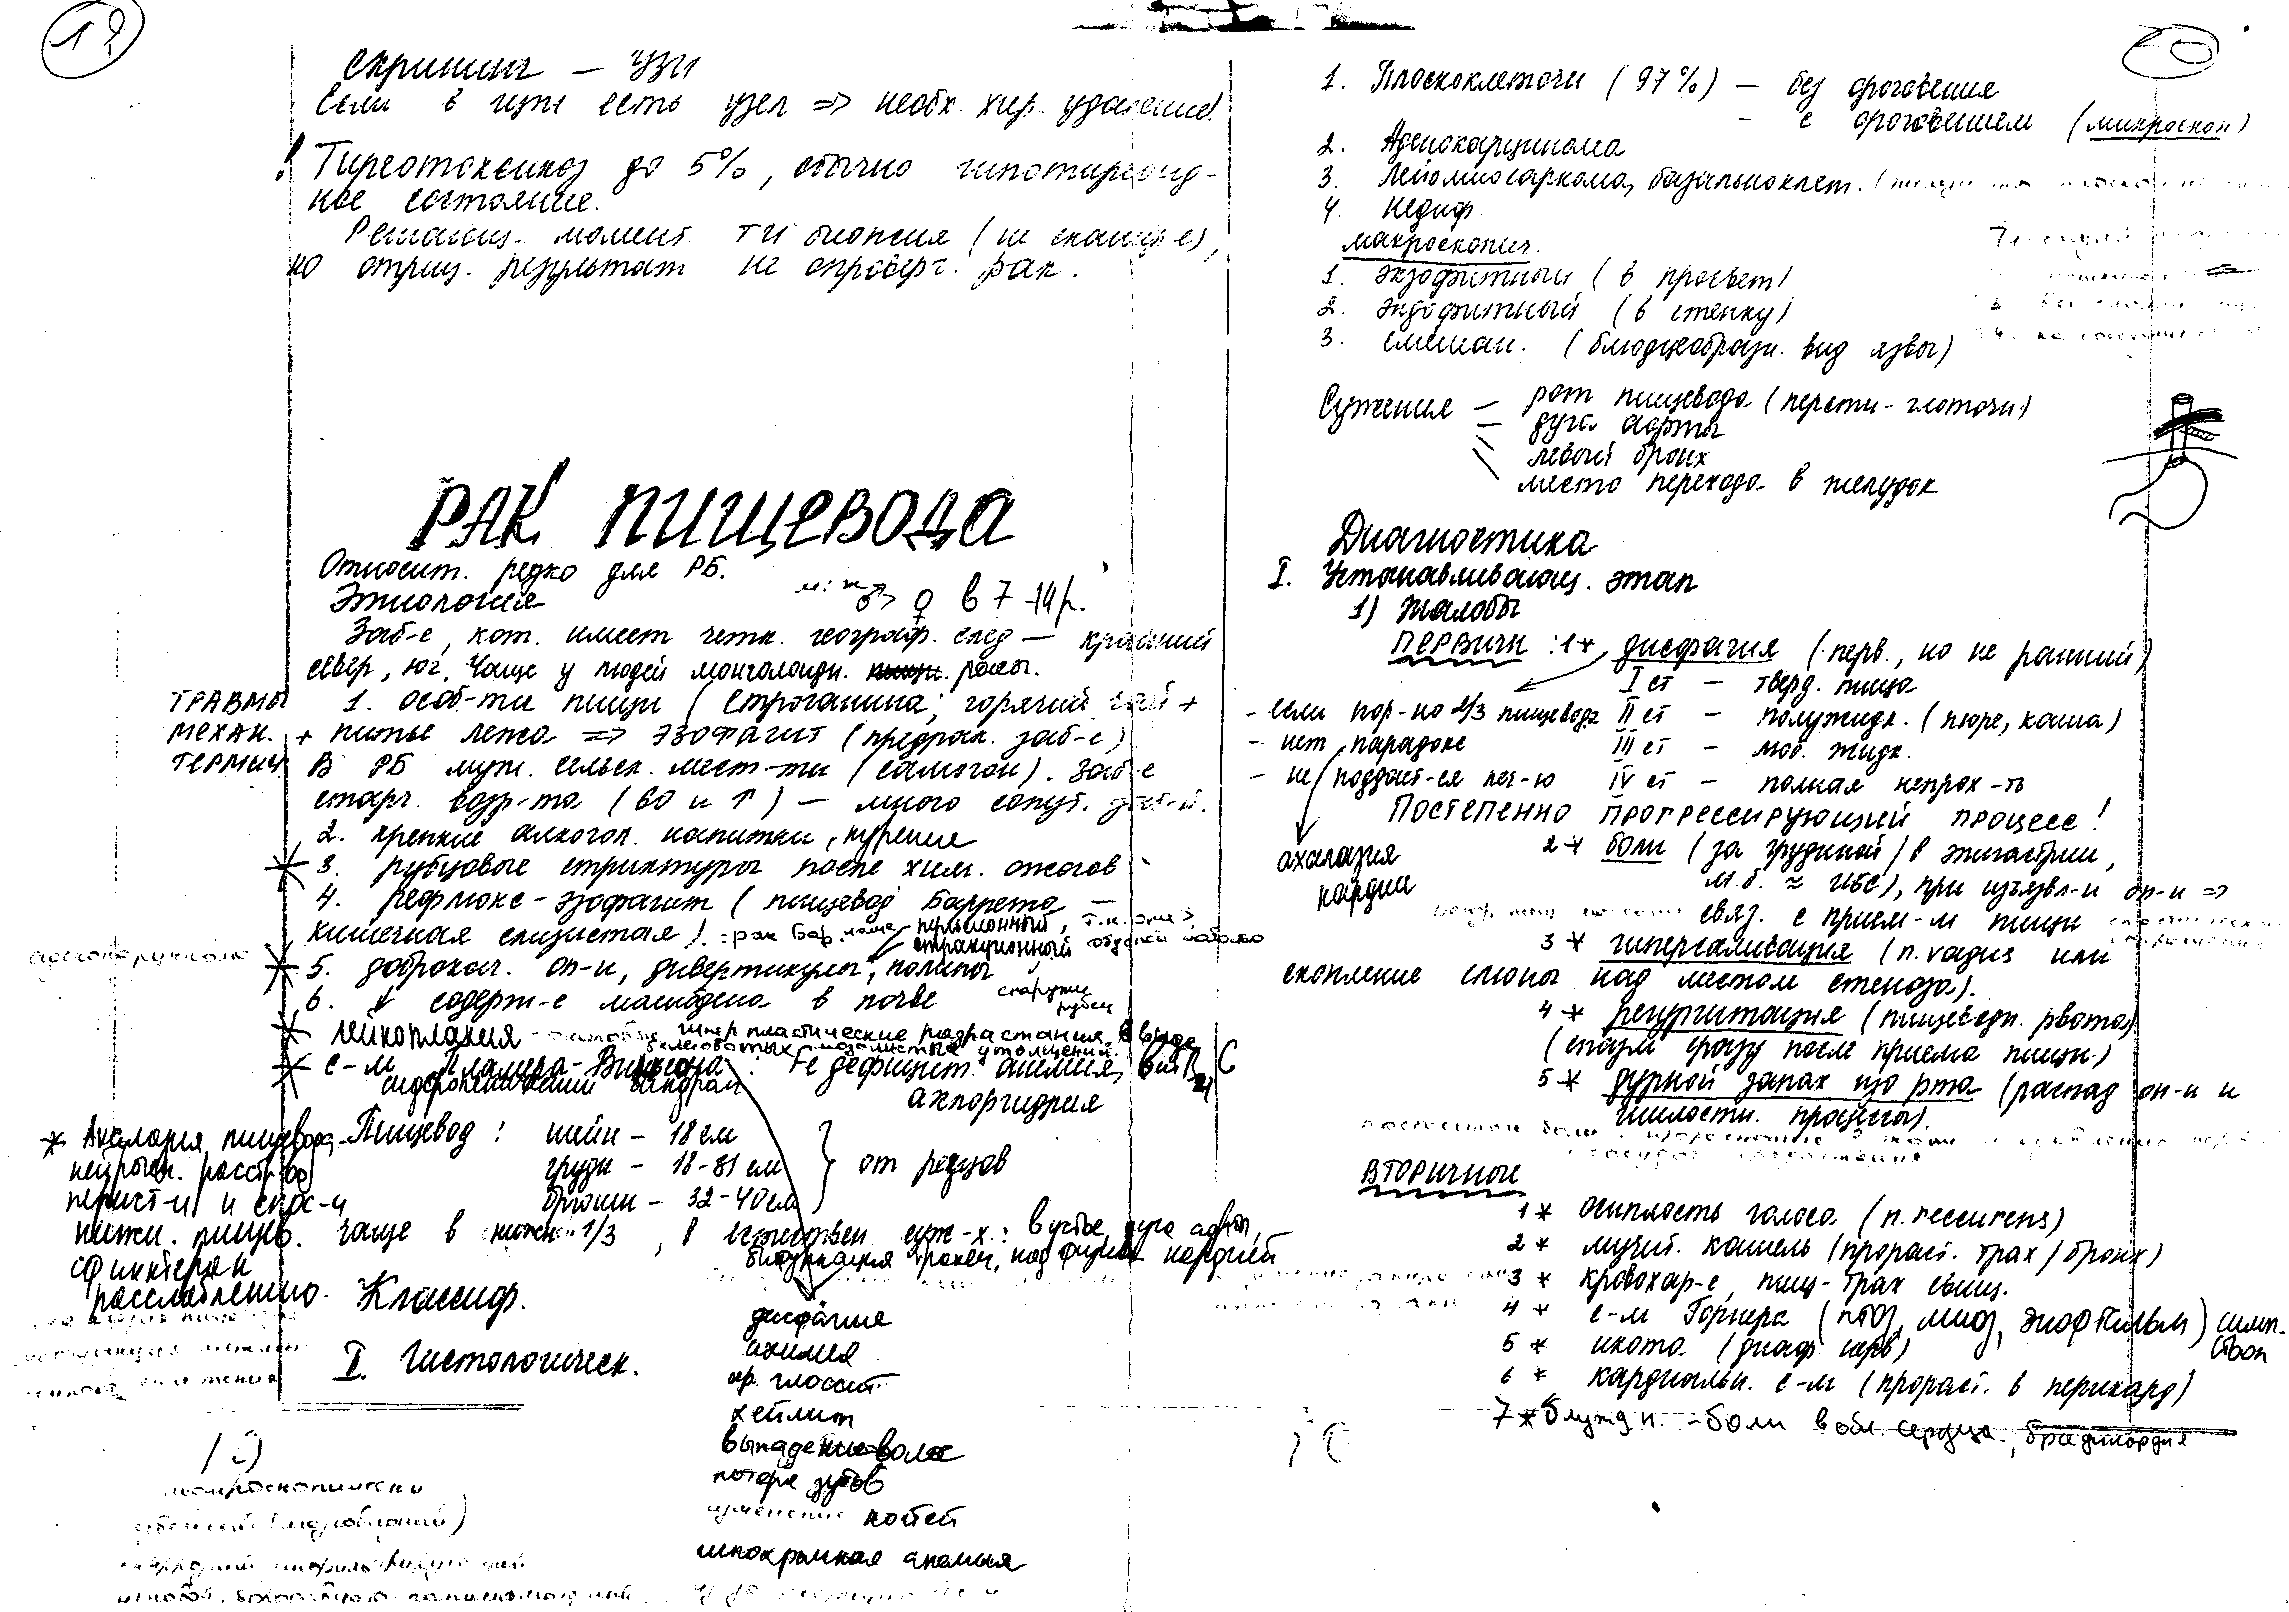 19
скрининг – УЗИ
Если в щж есть узел => необх. хир. удаление!
! Тиреотоксикоз до 5%, обычно гипотиреоид-
ное состояние.
Решающ. момент ТИ биопсия (не сканир-е),
но отриц. результат не опроверг. рак.
РАК ПИЩЕВОДА
Относит. редко для РБ.
Этиология
♂ > ♀ в 7-14 р.
Заб-е, кот. имеет четк. географ. след – крайний
север, юг. Чаще у людей монголоидн. расы.
ТРАВМЫ
МЕХАН.
ТЕРМИЧ
1. особ-ти пищи (строганина; горячий чай +
+ питье лежа => эзофагит (предрак. заб-е)
В РБ муж. сельск. мест-ти (самогон). Заб-е
старч. возр-та (60 и ↑) – много сопут. заб-й.
2. крепкие алкогол. напитки, курение
* 3. рубцовые стриктуры после хим. ожогов
4. рефлюкс-эзофагит (пищевод Баррета –
кишечная слизистая). : рак Бар.
пульсионный,
тракционный
аденокарцинома
* 5. доброкач. оп-и, дивертикулы, полипы
снаружи
рубец
6. ↓ содерж-е молибдена в почве
* лейкоплакия – гиперпластические разрастания в виде
белесоватых утолщений.
* с-м Пламера-Винсона : Fe дефицит. анемия, вит B, C
сидеропенический синдром
ахлоргидрия
* Ахалазия пищевода
нейроген. расстр-во
перист-и и спос-и
нижн. пищев.
сфинктера к
расслаблению.
Пищевод : шейн – 18 см
грудн – 18-31 см
брюшн – 32-40 см
} от резцов
чаще в нижн 1/3, в естествен суж-х : в устье, дуга аорты,
бифуркация трахеи, над физиол кардией
Классиф.
I. Гистологическ.
дисфагия
ахилия
хр. глоссит
хейлит
выпадение волос
потеря зубов
изменение ногтей
гипохромная анемия
19
макроскопически
20
1. Плоскоклеточн (97%) – без ороговения
– с ороговением (микроскоп)
2. Аденокарцинома
3. Лейомиосаркома, базальноклет.
4. недиф
макроскопич.
1. экзофитный (в просвет)
2. эндофитный (в стенку)
3. смешан. (блюдцеобразн. вид язвы)
Сужения – рот пищевода (персти-глоточн)
– дуга аорты
левый бронх
место перехода в желудок
Диагностика
I. Устанавливающ. этап
1) Жалобы
ПЕРВИЧН : 1* дисфагия (перв., но не ранний)
I ст – тверд. пища
- если пор-но 2/3 пищевода II ст – полужидк. (пюре, каша)
- нет парадокс III ст – люб. жидк.
- не поддаёт-ся леч-ю IV ст – полная непрох-ть
ПОСТЕПЕННО ПРОГРЕССИРУЮЩИЙ ПРОЦЕСС!
ахалазия
кардии
2* боли (за грудиной / в эпигастрии,
м.б. ≈ ИБС), при изъязвл-и оп-и =>
связ. с прием-м пищи
3* гиперсаливация (n. vagus или
скопление слюны над местом стеноза).
4* регургитация (пищеводн. рвота)
(спазм сразу после приема пищи)
5* дурной запах изо рта (распад оп-и и
гнилостн. процессы).
ВТОРИЧНЫЕ
1* осиплость голоса (n. reccurens)
2* мучит. кашель (прораст. трах / бронх)
3* кровохар-е, пищ-трах свищ.
4* с-м Горнера (птоз, миоз, энофтальм) симп.
ствол
5* икота (диаф нерв)
6* кардиальн. с-м (прораст. в перикард)
7* блужд н. – боли в обл. сердца, брадикардия